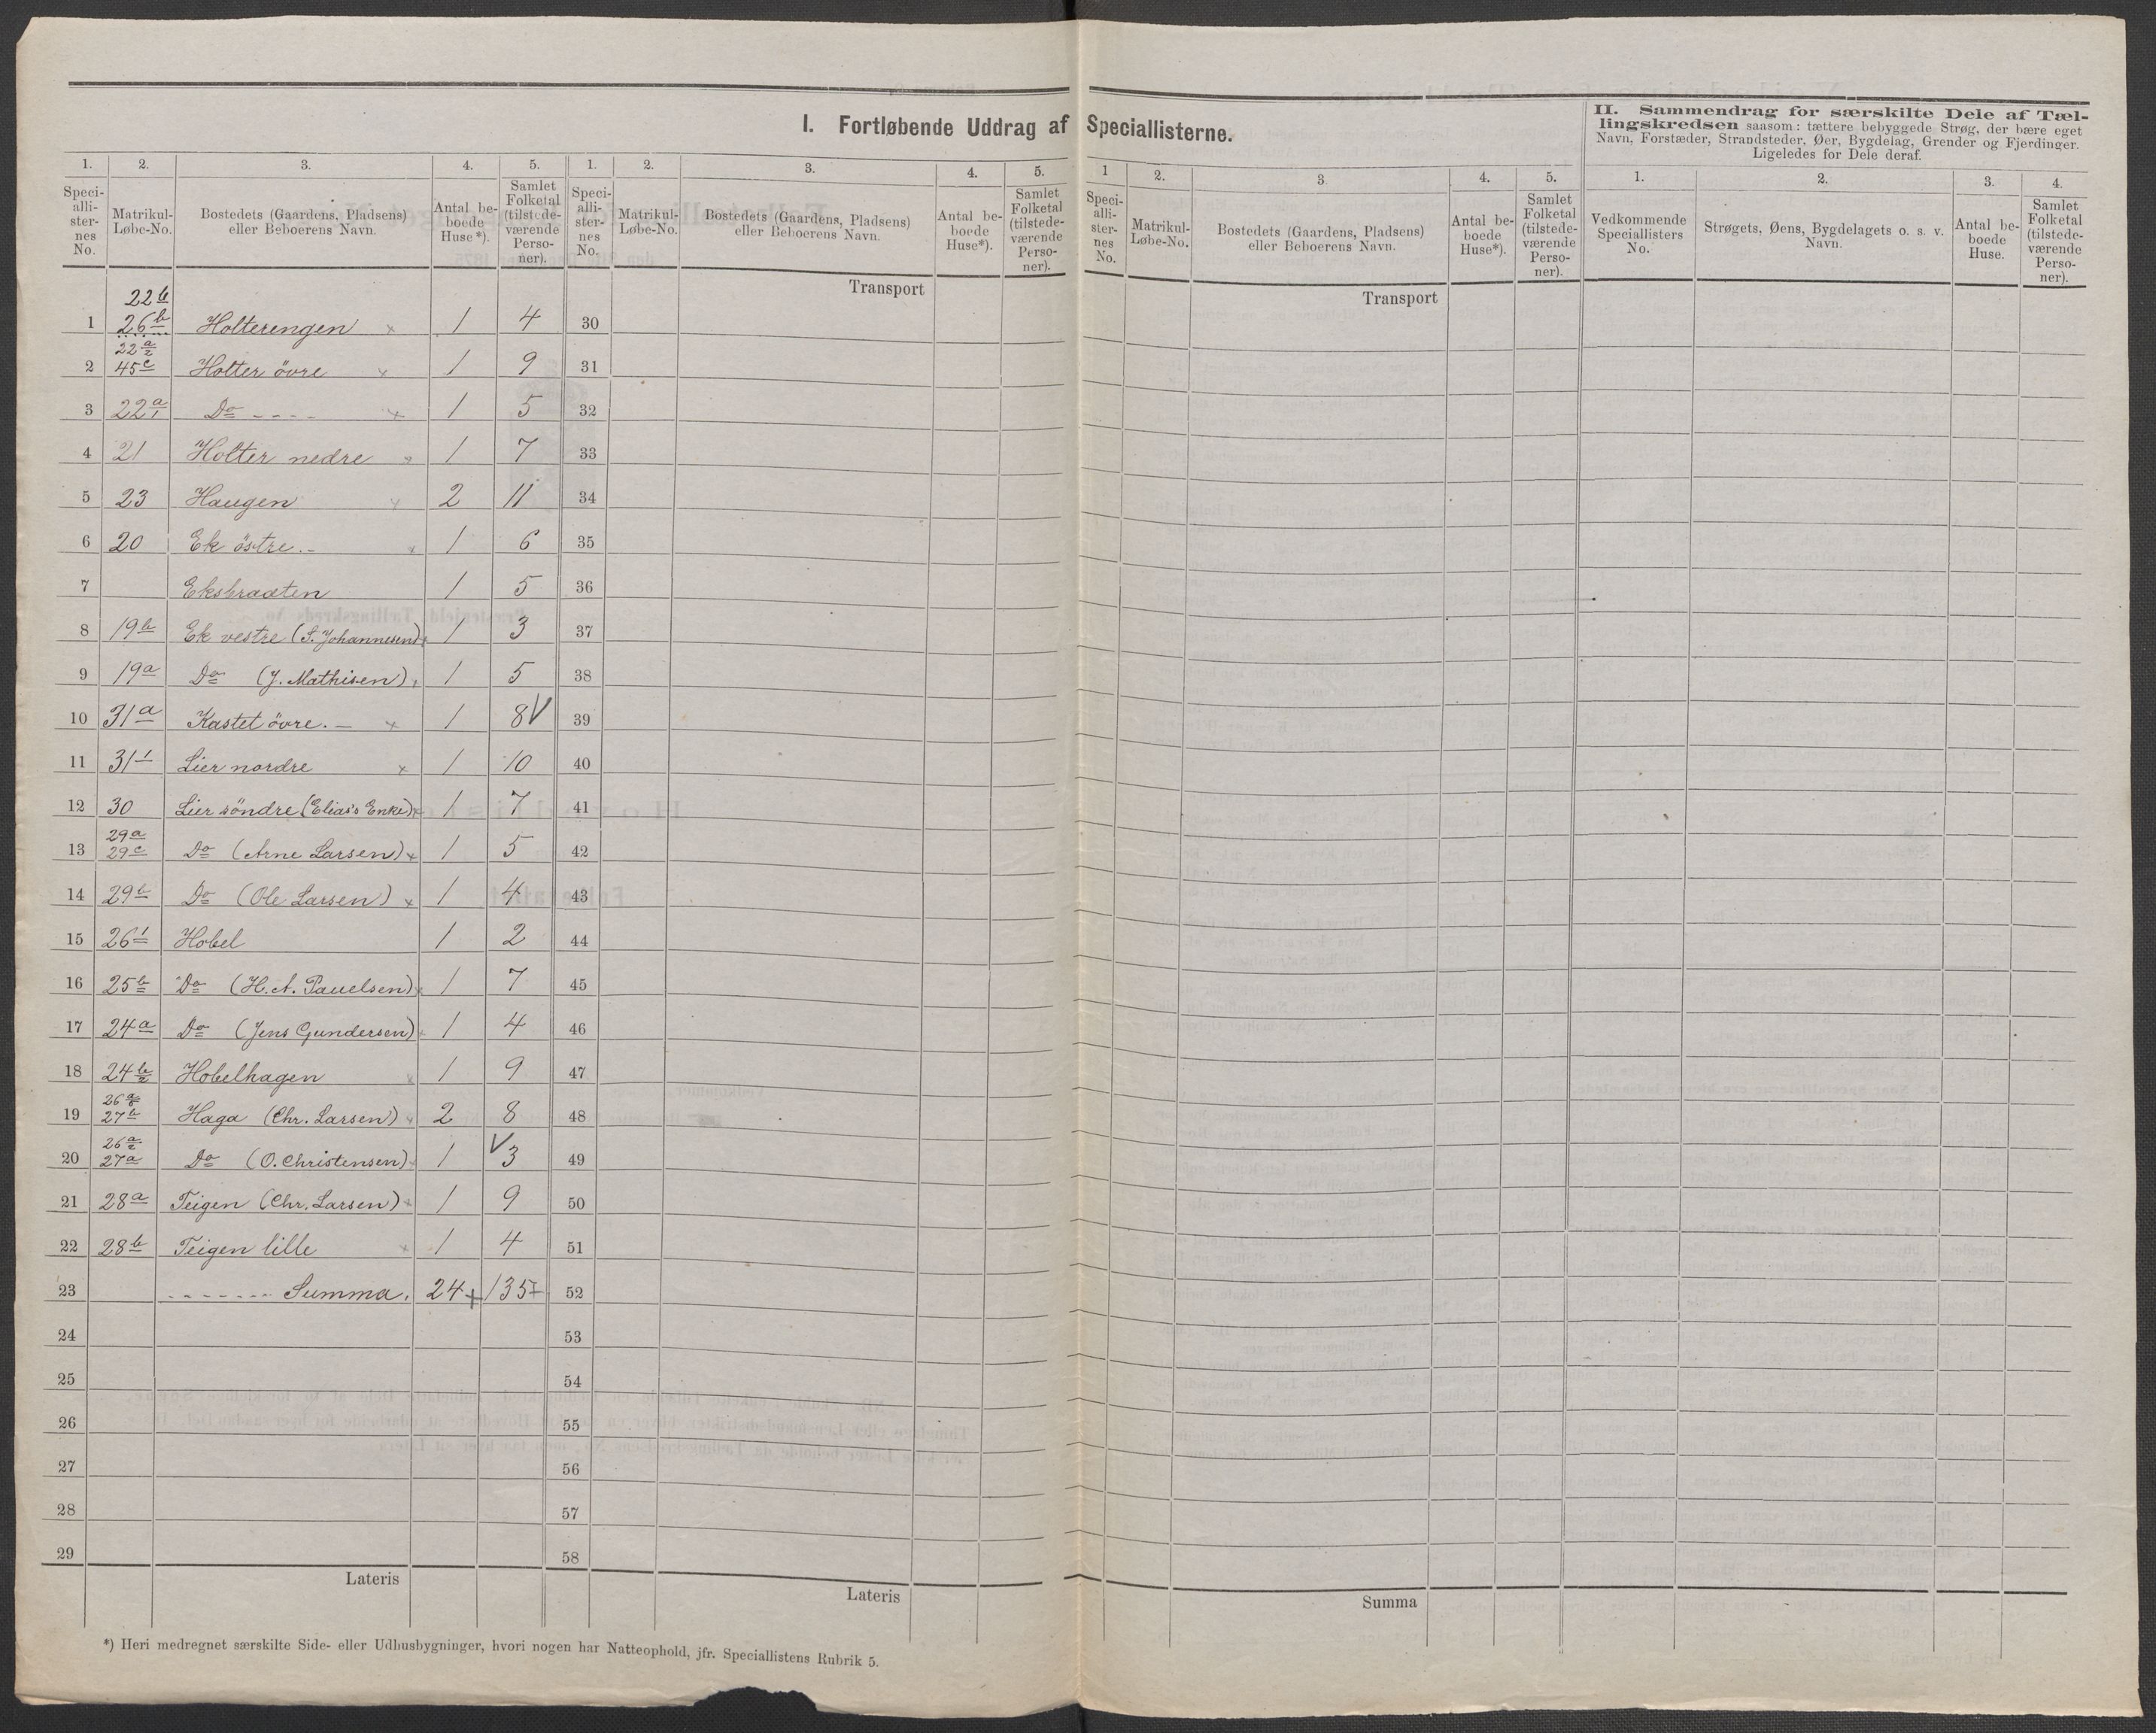 I. Fortløbende Uddrag af Speciallisterne.
II. Sammendrag for særskilte Dele af Tæl-
lingskredsen saasom: tættere bebyggede Strøg, der bære eget
Navn, Forstæder, Strandsteder, Øer, Bygdelag, Grender og Fjerdinger.
Ligeledes for Dele deraf.
1. 2. 3. 4. 5. 1. 2. 3. 4. 5. 1 2. 3. 4. 5. 1. 2. 3. 4.
Speci-
alli-
ster-
nes
No.
Matrikul-
Løbe-No.
Bostedets (Gaardens, Pladsens)
eller Beboerens Navn.
Antal be-
boede
Huse*).
Samlet
Folketal
(tilstede-
værende
Perso-
ner).
Speci-
alli-
ster-
nes
No.
Matrikul-
Løbe-No.
Bostedets (Gaardens, Pladsens)
eller Beboerens Navn.
Antal be-
boede
Huse*).
Samlet
Folketal
(tilstede-
værende
Perso-
ner).
Speci-
alli-
ster-
nes
No.
Matrikul-
Løbe-No.
Bostedets (Gaardens, Pladsens)
eller Beboerens Navn.
Antal be-
boede
Huse*).
Samlet
Folketal
(tilstede-
værende
Perso-
ner).
Vedkommende
Speciallisters
No.
Strøgets, Øens, Bygdelagets o. s. v.
Navn.
Antal be-
boede
Huse.
Samlet
Folketal
(tilstede-
værende
Perso-
ner).
Transport Transport
22b
1 26b Holterengen × 1 4 30
22 a/2
2 45c Holter övre × 1 9 31
3 22 a/1 Do - - - - × 1 5 32
4 21 Holter nedre × 1 7 33
5 23 Haugen × 2 11 34
6 20 Ek östre.- × 1 6 35
7 Eksbraaten 1 5 36
8 19b Ek vestre (S. Johannesen) 1 3 37
9 19a Do (J. Mathisen) 1 5 38
10 31a Kastet övre. — × 1 8 V 39
11 31 1 Lier nordre × 1 10 40
12 30 Lier söndre (Elias's Enke) × 1 7 41
29a
13 29c Do (Arne Larsen) × 1 5 42
14 29b Do (Ole Larsen) × 1 4 43
15 26 1 Hobel 1 2 44
16 25b Do (H. A. Pauelsen) × 1 7 45
17 24a Do (Jens Gundersen) × 1 4 46
18 24 b/2 Hobelhagen × 1 9 47
26
19 27b Haga (Chr. Larsen) × 2 8 48
26 a/2
20 27a Do (O. Christensen) 1 V 3 49
21 28a Teigen (Chr. Larsen) × 1 9 50
22 28b Teigen lille × 1 4 51
23 - - - - - - - Summa. 24 + 135 + 52
24 53
25 54
26 55
27 56
28 57
29 58
Lateris Lateris Summa
*) Heri medregnet særskilte Side- eller Udhusbygninger, hvori nogen har Natteophold, jfr. Speciallistens Rubrik 5.